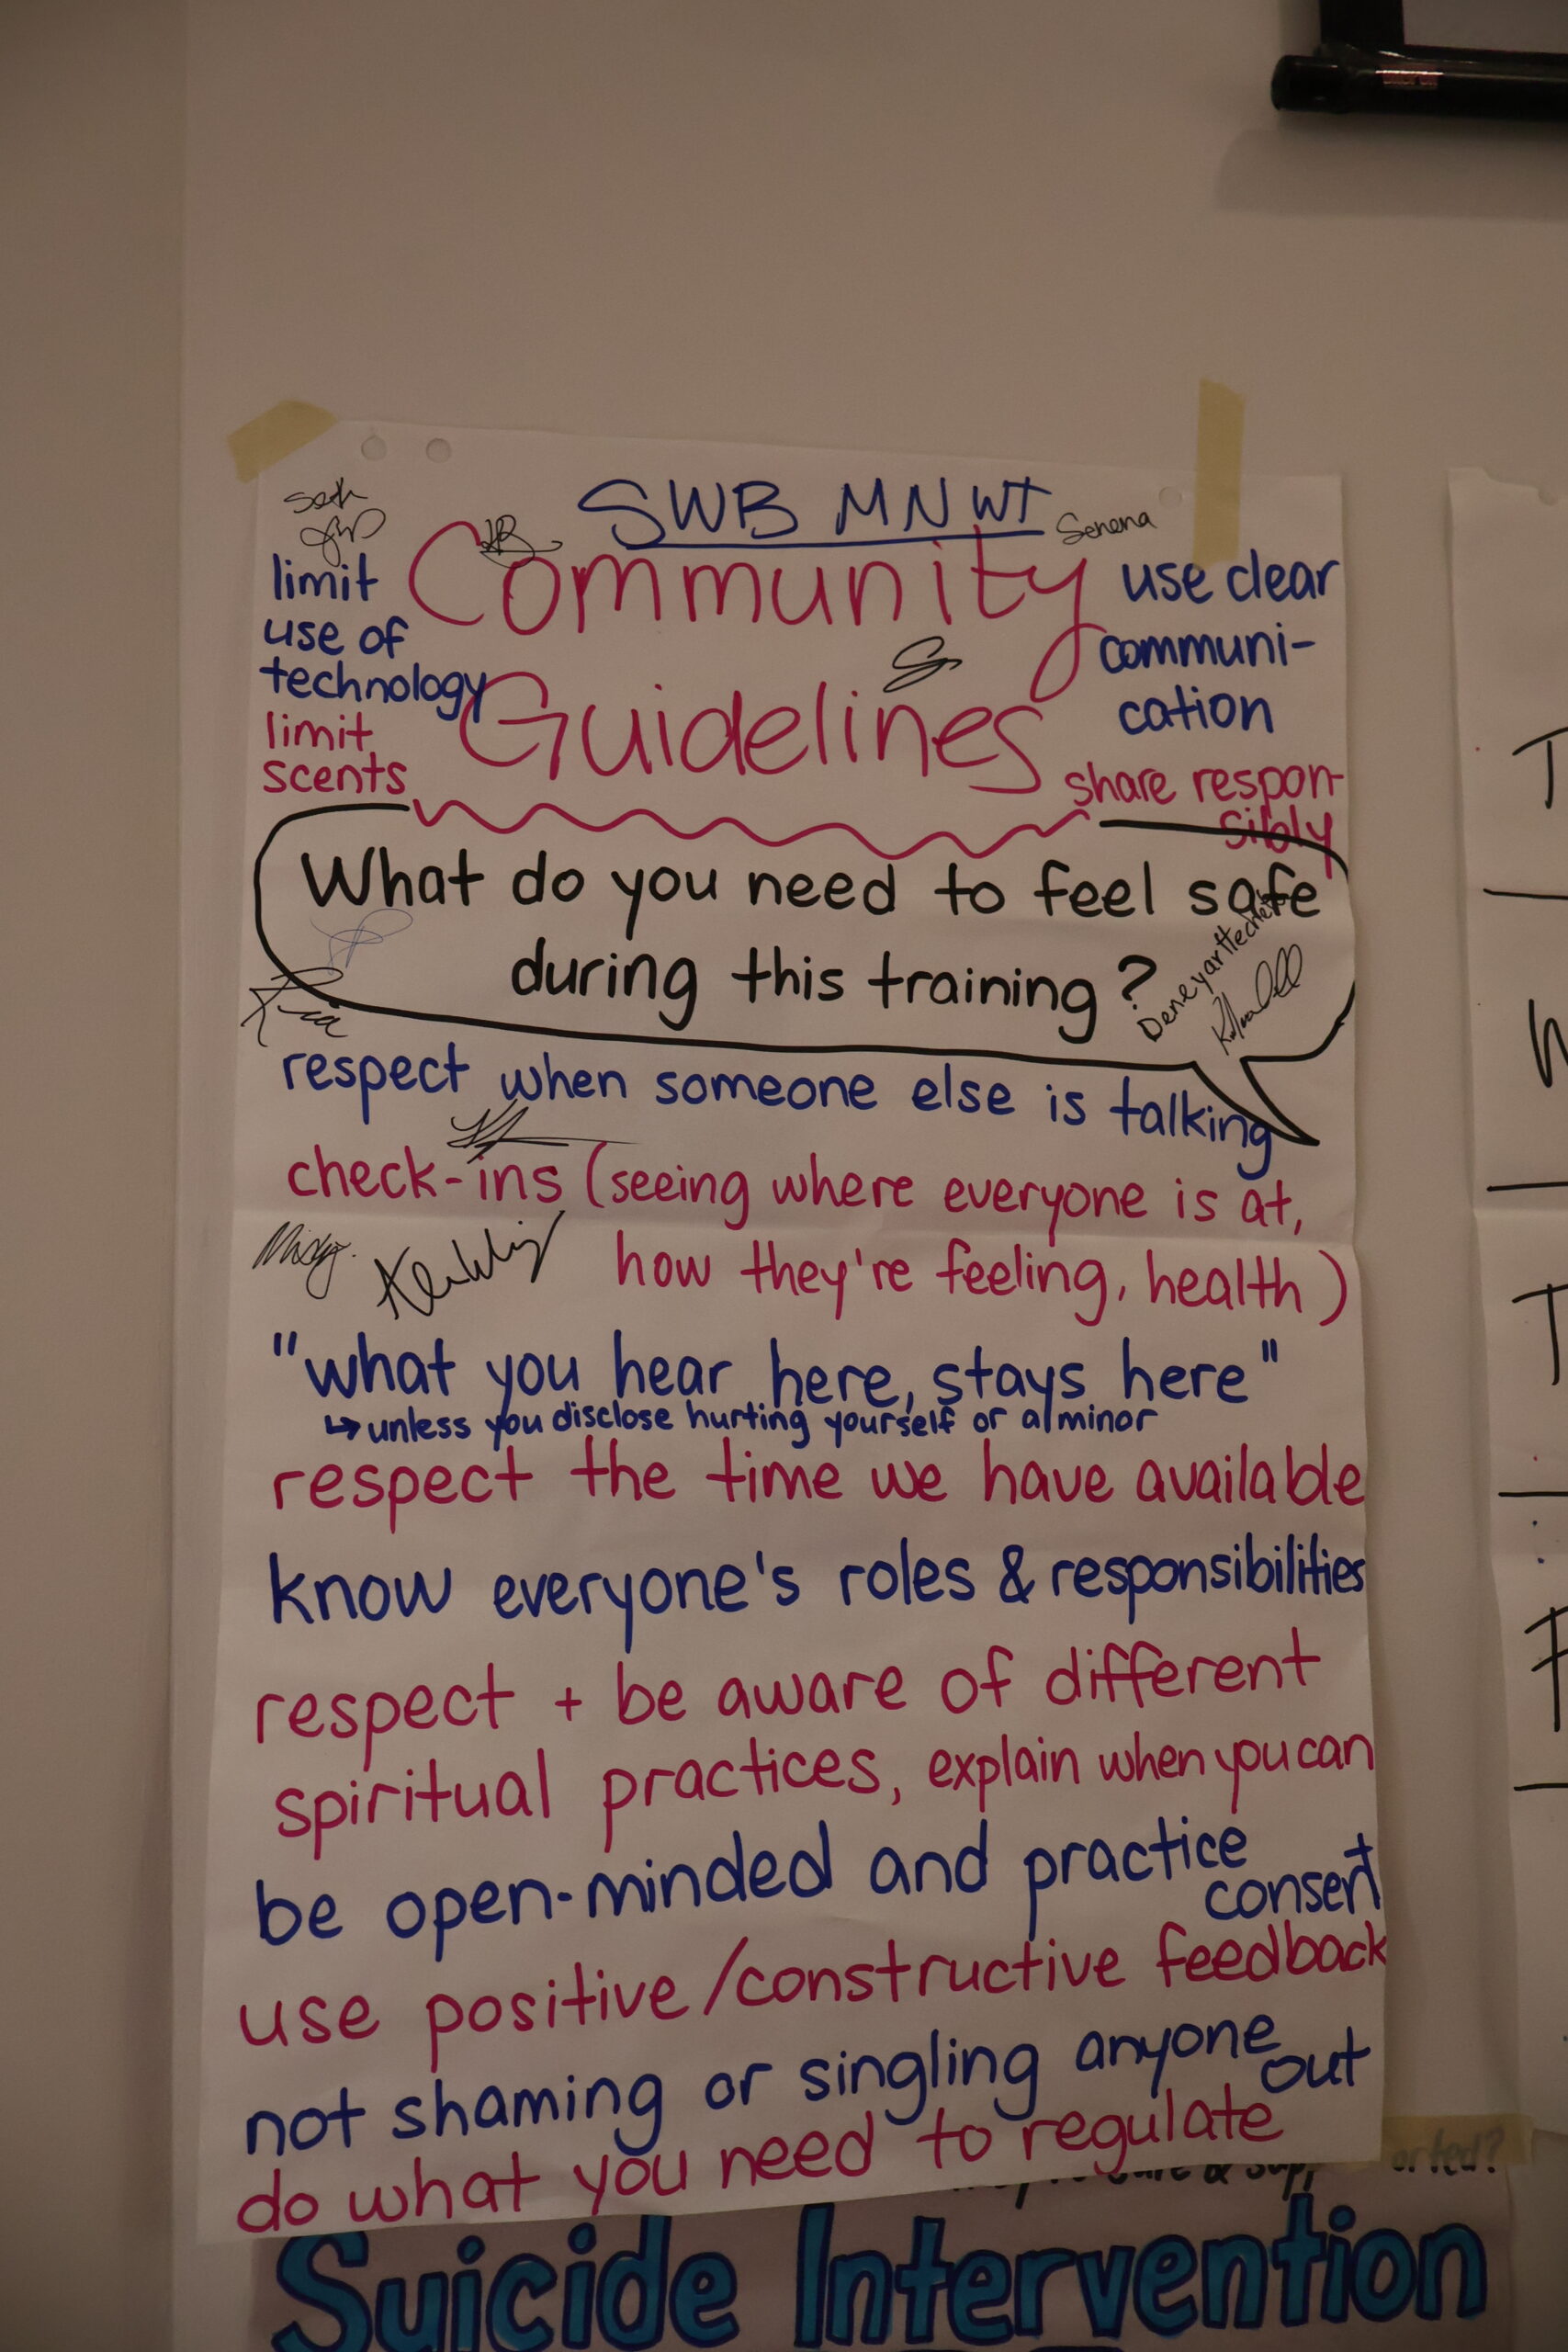 SWB MNWT
Seth
Serena
Community
Guidelines
limit
use of
technology
limit
scents
use clear
communi-
cation
share respon-
sibly
What do you need to feel safe
during this training?
respect when someone else is talking
check-ins (seeing where everyone is at,
how they're feeling, health)
"what you hear here, stays here"
↳ unless you disclose hurting yourself or a minor
respect the time we have available
know everyone's roles & responsibilities
respect + be aware of different
spiritual practices, explain when you can
be open-minded and practice
consent
use positive/constructive feedback
not shaming or singling anyone
out
do what you need to regulate
Suicide Intervention